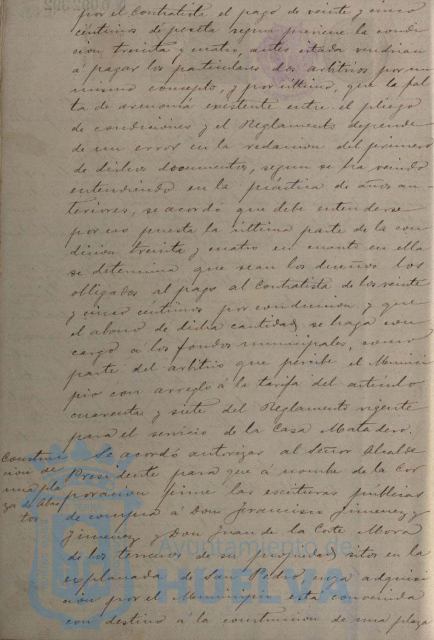 por el Contratista el pago de veinte y cinco
céntimos de peseta segun previene la condi-
cion treinta y cuatro, antes citada vendrian
á pagar los particulares dos arbitrios por un
mismo concepto, y por último, que la fal
ta de armonía existente entre el pliego
de condiciones y el Reglamento depende
de un error en la redaccion del primero
de dichos documentos, segun se ha venido
entendiendo en la práctica de años an-
teriores, se acordó que debe entenderse
por no puesta la última parte de la con
dicion treinta y cuatro en cuanto en ella
se determina que sean los dueños los
obligados al pago al Contratista de los veinte
y cinco céntimos por conduccion y que
el abono de dicha cantidad se haga con
cargo á los fondos municipales, como
parte del arbitrio que percibe el Munici
pio con arreglo á la tarifa del artículo
cuarenta y siete del Reglamento vigente
para el servicio de la Casa Matadero.
Construc
cion de
una pla
za de Aba
tos
Se acordó autorizar al Señor Alcalde
Presidente para que á nombre de la Cor
poracion firme las escrituras públicas
de compra á Don Francisco Jimenez y
Jimenez y Don Juan de la Corte Mora
de los terrenos de su propiedad sitos en la
explanada de San Pedro, cuya adquisi
cion por el Municipio está convenida
con destino á la construccion de una plaza
Ayuntamiento de
HUELVA